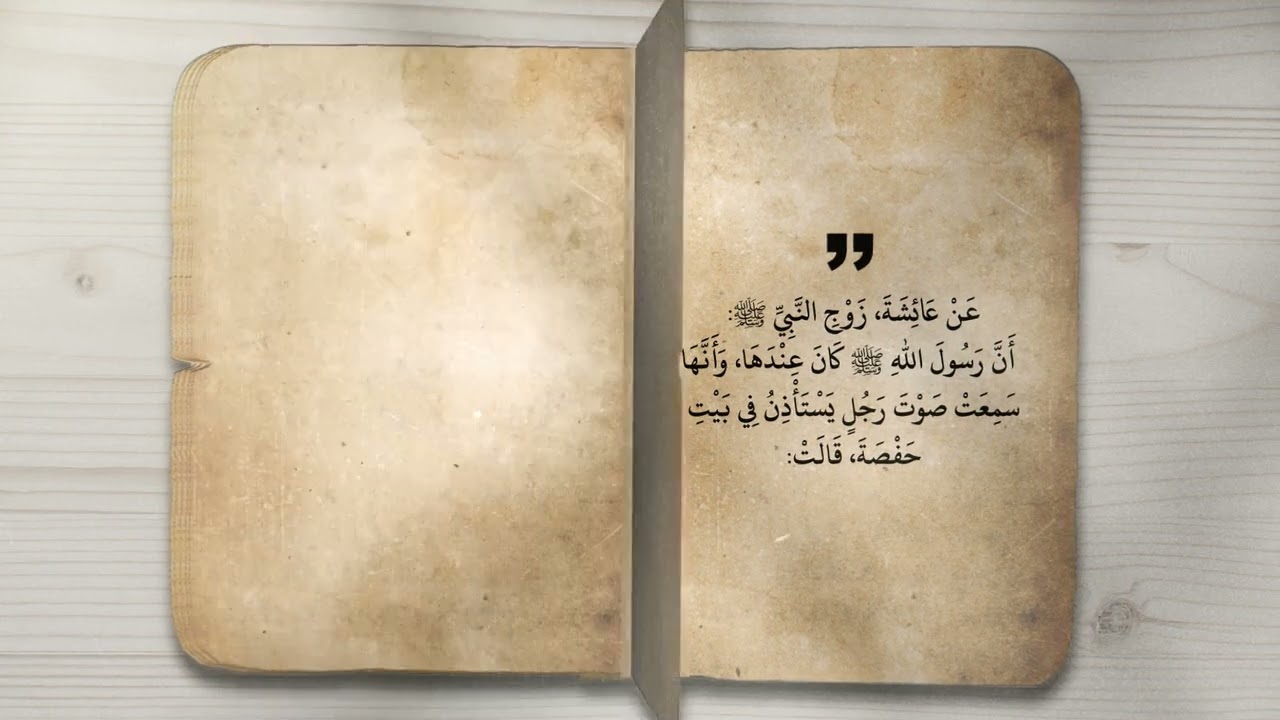 ❞
عَنْ عَائِشَةَ، زَوْجِ النَّبِيِّ ﷺ:
أَنَّ رَسُولَ اللهِ ﷺ كَانَ عِنْدَهَا، وَأَنَّهَا
سَمِعَتْ صَوْتَ رَجُلٍ يَسْتَأْذِنُ فِي بَيْتِ
حَفْصَةَ، قَالَتْ: